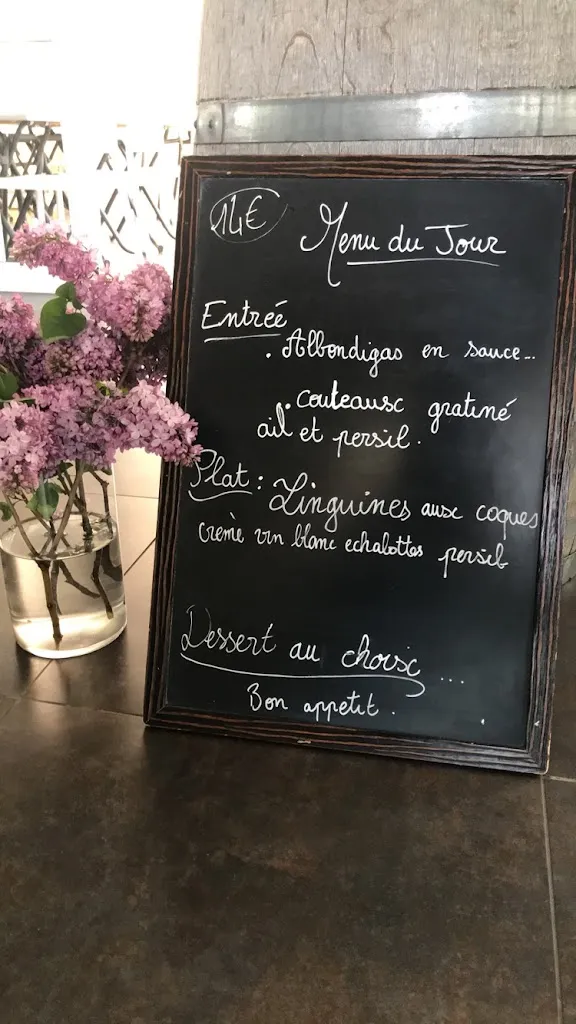 14€
Menu du Jour
Entreé
. Albondigas en sauce...
. couteaux gratiné
ail et persil.
Plat : Linguines aux coques
crème vin blanc echalottes persil
Dessert au choix ...
Bon appetit.